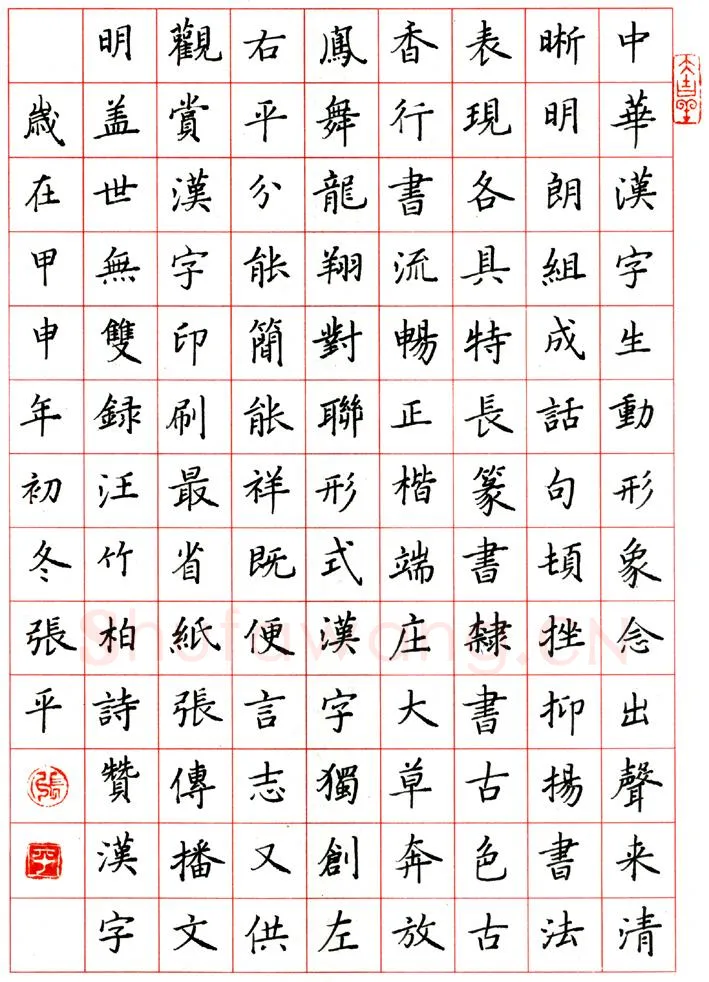 中華漢字生動形象念出聲来清
晰明朗組成話句頓挫抑揚書法
表現各具特長篆書隸書古色古
香行書流暢正楷端庄大草奔放
鳳舞龍翔對聯形式漢字獨創左
右平分能簡能祥既便言志又供
觀賞漢字印刷最省紙張傳播文
明盖世無雙録汪竹柏詩贊漢字
歲在甲申年初冬張平
張
平
Shufawang.CN